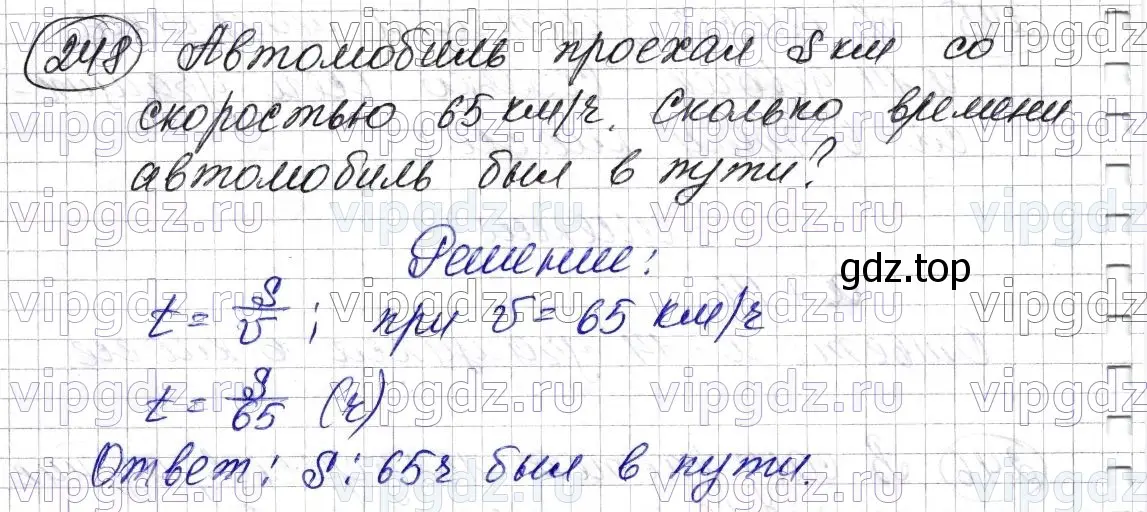 248 Автомобиль проехал S км со
скоростью 65 км/ч. Сколько времени
автомобиль был в пути?
Решение:
gdz.top
t = S/v ; при v = 65 км/ч
t = S/65 (ч)
Ответ: S : 65 ч был в пути.
vipgdz.ru